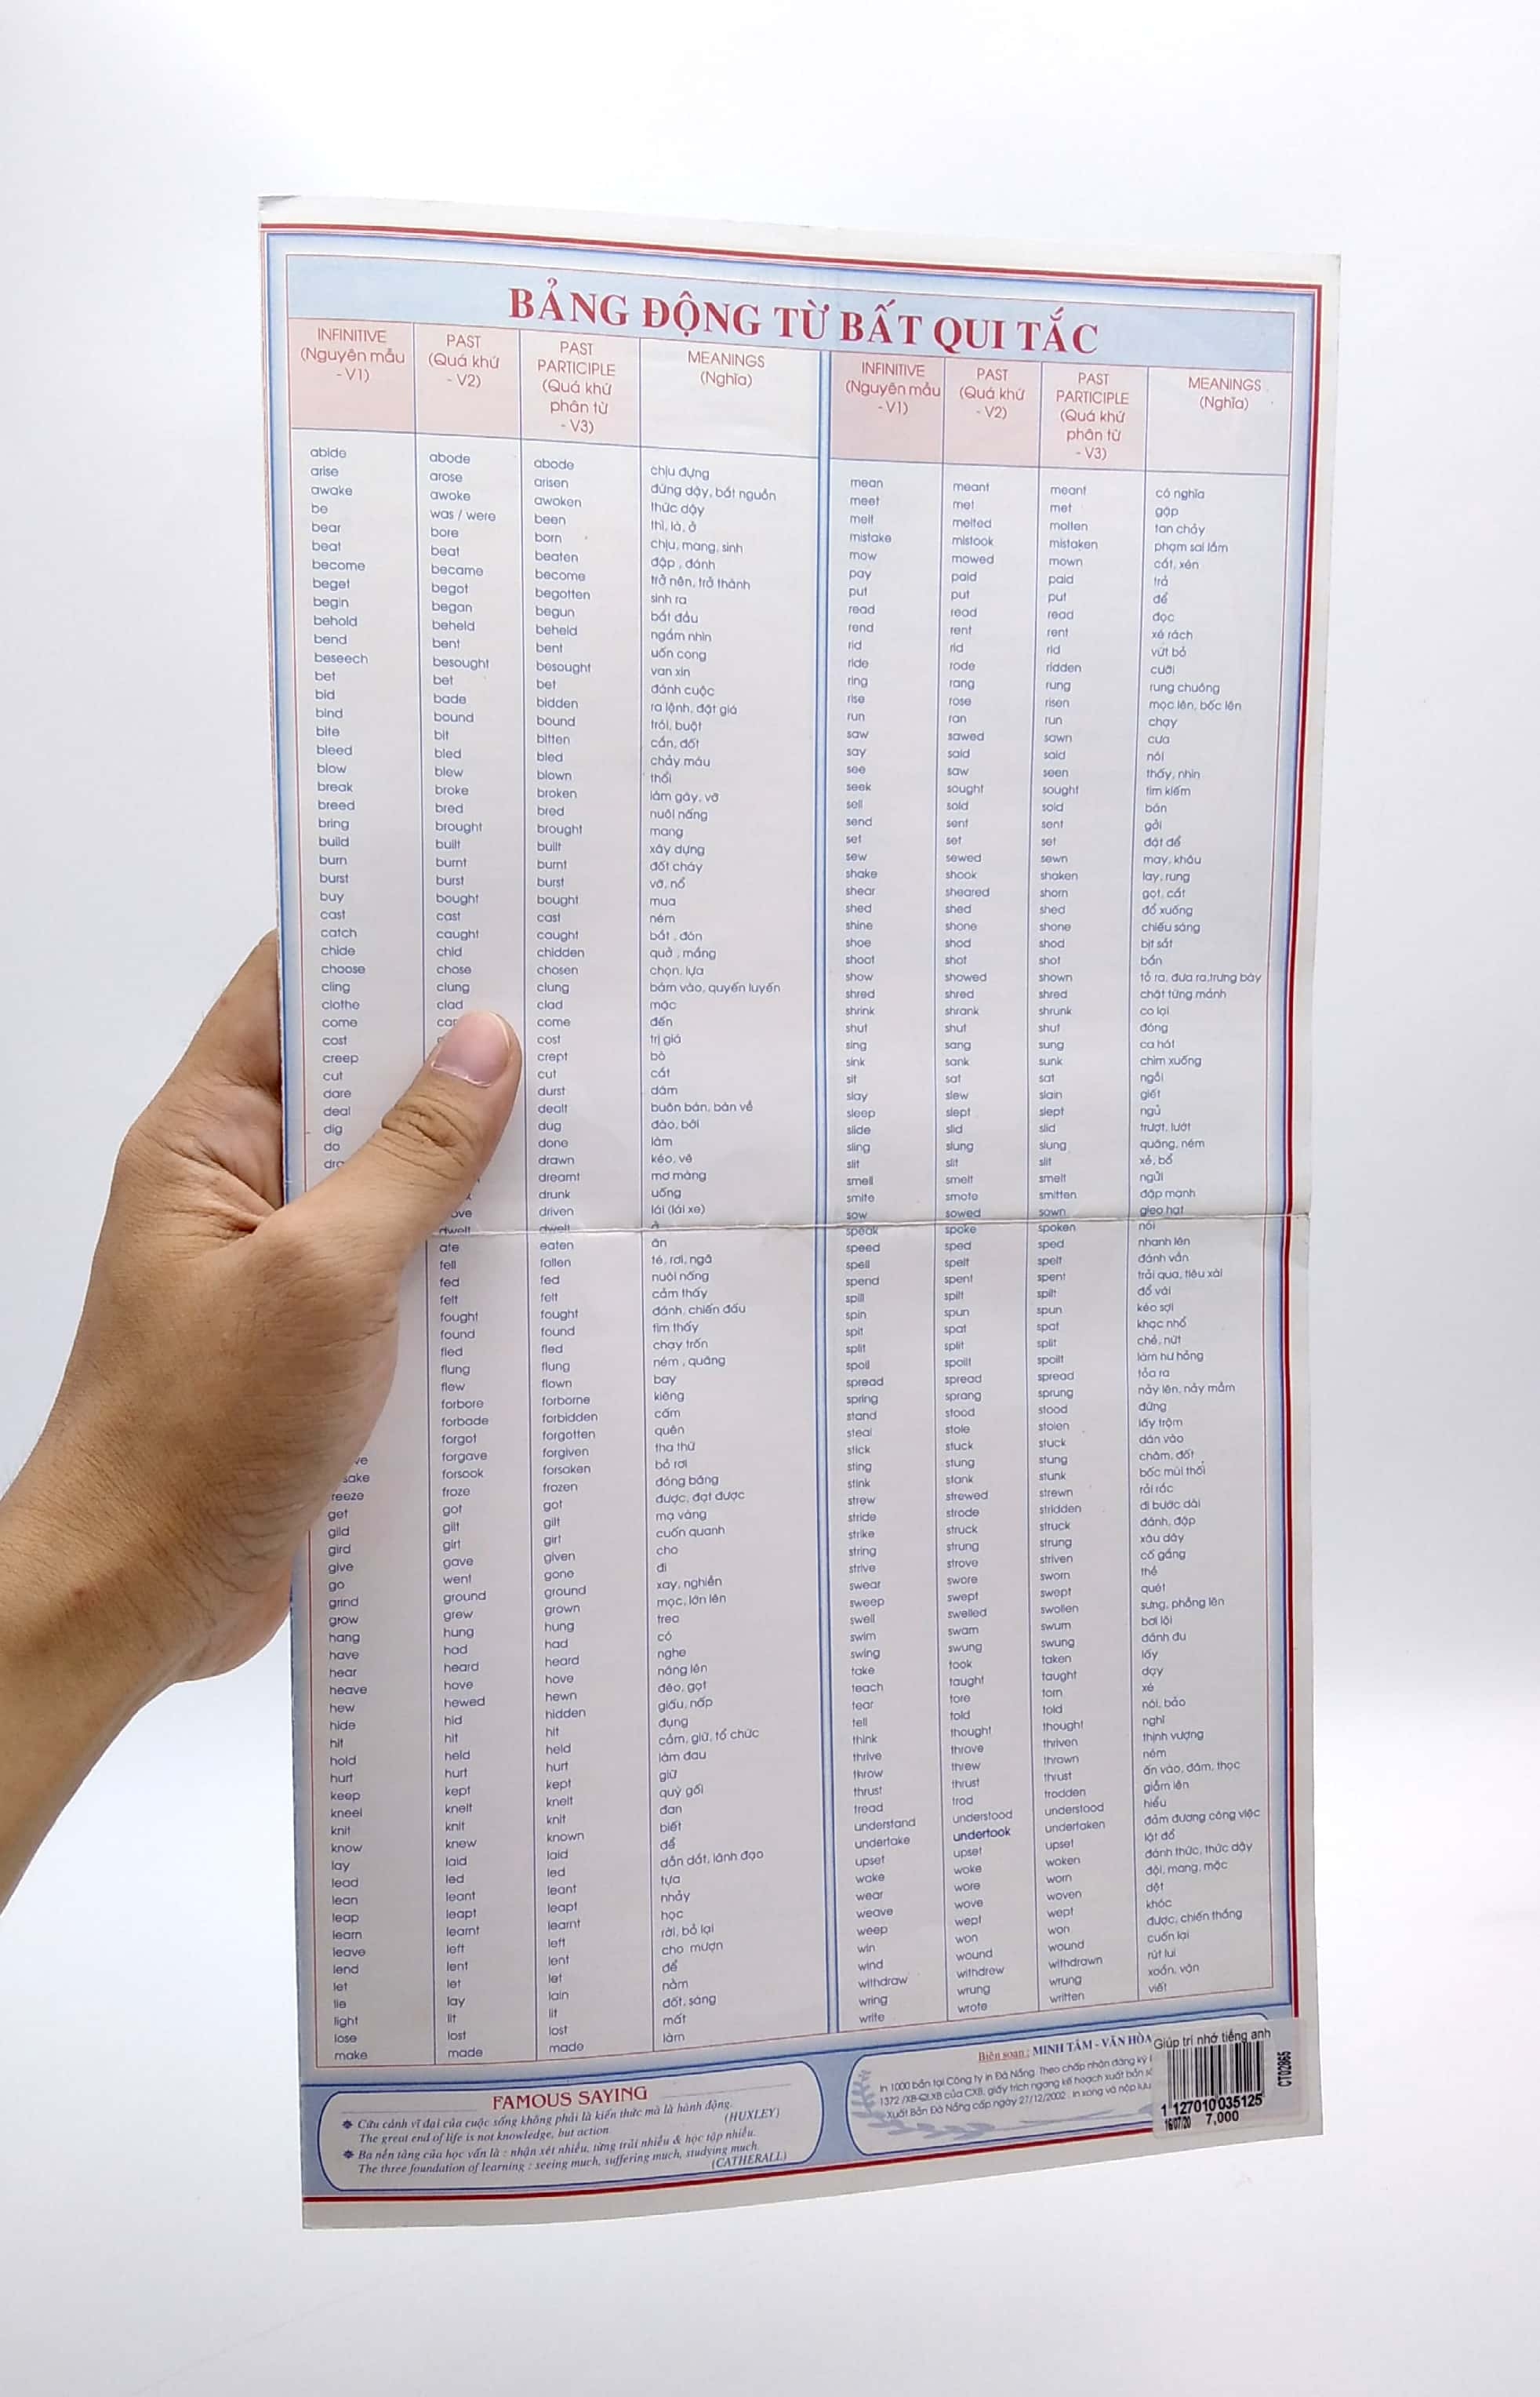 BẢNG ĐỘNG TỪ BẤT QUI TẮC
INFINITIVE (Nguyên mẫu - V1) PAST (Quá khứ - V2) PAST PARTICIPLE (Quá khứ phân từ - V3) MEANINGS (Nghĩa)
abide abode abode chịu đựng
arise arose arisen đứng dậy, bắt nguồn
awake awoke awoken thức dậy
be was / were been thì, là, ở
bear bore born chịu, mang, sinh
beat beat beaten đập , đánh
become became become trở nên, trở thành
beget begot begotten sinh ra
begin began begun bắt đầu
behold beheld beheld ngắm nhìn
bend bent bent uốn cong
beseech besought besought van xin
bet bet bet đánh cuộc
bid bade bidden ra lệnh, đặt giá
bind bound bound trói, buột
bite bit bitten cắn, đốt
bleed bled bled chảy máu
blow blew blown thổi
break broke broken làm gãy, vỡ
breed bred bred nuôi nấng
bring brought brought mang
build built built xây dựng
burn burnt burnt đốt cháy
burst burst burst vỡ, nổ
buy bought bought mua
cast cast cast ném
catch caught caught bắt , đón
chide chid chidden quở , mắng
choose chose chosen chọn, lựa
cling clung clung bám vào, quyến luyến
clothe clad clad mặc
come come đến
cost cost trị giá
creep crept bò
cut cut cắt
dare durst dám
deal dealt buôn bán, bàn về
dig dug đào, bới
do done làm
drawn kéo, vẽ
dreamt mơ màng
drunk uống
driven lái (lái xe)
dwelt dwelt ở
ate eaten ăn
fell fallen té, rơi, ngã
fed fed nuôi nấng
felt felt cảm thấy
fought fought đánh, chiến đấu
found found tìm thấy
fled fled chạy trốn
flung flung ném , quăng
flew flown bay
forbore forborne kiêng
forbade forbidden cấm
forgot forgotten quên
forgave forgiven tha thứ
forsook forsaken bỏ rơi
froze frozen đóng băng
get got got được, đạt được
gild gilt gilt mạ vàng
gird girt girt cuốn quanh
give gave given cho
go went gone đi
grind ground ground xay, nghiền
grow grew grown mọc, lớn lên
hang hung hung treo
have had had có
hear heard heard nghe
heave hove hove nâng lên
hew hewed hewn đẽo, gọt
hide hid hidden giấu, nấp
hit hit hit đụng
hold held held cầm, giữ, tổ chức
hurt hurt hurt làm đau
keep kept kept giữ
kneel knelt knelt quỳ gối
knit knit knit đan
know knew known biết
lay laid laid để
lead led led dẫn dắt, lãnh đạo
lean leant leant tựa
leap leapt leapt nhảy
learn learnt learnt học
leave left left rời, bỏ lại
lend lent lent cho mượn
let let let để
lie lay lain nằm
light lit lit đốt, sáng
lose lost lost mất
make made made làm
INFINITIVE (Nguyên mẫu - V1) PAST (Quá khứ - V2) PAST PARTICIPLE (Quá khứ phân từ - V3) MEANINGS (Nghĩa)
mean meant meant có nghĩa
meet met met gặp
melt melted molten tan chảy
mistake mistook mistaken phạm sai lầm
mow mowed mown cắt, xén
pay paid paid trả
put put put để
read read read đọc
rend rent rent xé rách
rid rid rid vứt bỏ
ride rode ridden cưỡi
ring rang rung rung chuông
rise rose risen mọc lên, bốc lên
run ran run chạy
saw sawed sawn cưa
say said said nói
see saw seen thấy, nhìn
seek sought sought tìm kiếm
sell sold sold bán
send sent sent gởi
set set set đặt để
sew sewed sewn may, khâu
shake shook shaken lay, rung
shear sheared shorn gọt, cắt
shed shed shed đổ xuống
shine shone shone chiếu sáng
shoe shod shod bịt sắt
shoot shot shot bắn
show showed shown tỏ ra, đưa ra,trưng bày
shred shred shred chặt từng mảnh
shrink shrank shrunk co lại
shut shut shut đóng
sing sang sung ca hát
sink sank sunk chìm xuống
sit sat sat ngồi
slay slew slain giết
sleep slept slept ngủ
slide slid slid trượt, lướt
sling slung slung quăng, ném
slit slit slit xẻ, bổ
smell smelt smelt ngửi
smite smote smitten đập mạnh
sow sowed sown gieo hạt
speak spoke spoken nói
speed sped sped nhanh lên
spell spelt spelt đánh vần
spend spent spent trải qua, tiêu xài
spill spilt spilt đổ vãi
spin spun spun kéo sợi
spit spat spat khạc nhổ
split split split chẻ, nứt
spoil spoilt spoilt làm hư hỏng
spread spread spread tỏa ra
spring sprang sprung nảy lên, nảy mầm
stand stood stood đứng
steal stole stolen lấy trộm
stick stuck stuck dán vào
sting stung stung châm, đốt
stink stank stunk bốc mùi thối
strew strewed strewn rải rắc
stride strode stridden đi bước dài
strike struck struck đánh, đập
string strung strung xâu dây
strive strove striven cố gắng
swear swore sworn thề
sweep swept swept quét
swell swelled swollen sưng, phồng lên
swim swam swum bơi lội
swing swung swung đánh đu
take took taken lấy
teach taught taught dạy
tear tore torn xé
tell told told nói, bảo
think thought thought nghĩ
thrive throve thriven thịnh vượng
throw threw thrown ném
thrust thrust thrust ấn vào, đâm, thọc
tread trod trodden giẫm lên
understand understood understood hiểu
undertake undertook undertaken đảm đương công việc
upset upset upset lật đổ
wake woke woken đánh thức, thức dậy
wear wore worn đội, mang, mặc
weave wove woven dệt
weep wept wept khóc
win won won được, chiến thắng
wind wound wound cuốn lại
withdraw withdrew withdrawn rút lui
wring wrung wrung xoắn, vặn
write wrote written viết
FAMOUS SAYING
Cứu cánh vĩ đại của cuộc sống không phải là kiến thức mà là hành động.
The great end of life is not knowledge, but action (HUXLEY)
Ba nền tảng của học vấn là : nhận xét nhiều, từng trải nhiều & học tập nhiều.
The three foundation of learning : seeing much, suffering much, studying much.
(CATHERALL)
Biên soạn : MINH TÂM - VĂN HÒA
In 1000 bản tại Công ty in Đà Nẵng. Theo chấp nhận đăng ký
1372 /XB-QLXB của CXB, giấy trích ngang kế hoạch xuất bản số
Xuất Bản Đà Nẵng cấp ngày 27/12/2002 . In xong và nộp lưu
Giúp trí nhớ tiếng anh
1 127010 035125
16/07/20 7,000
CT02865